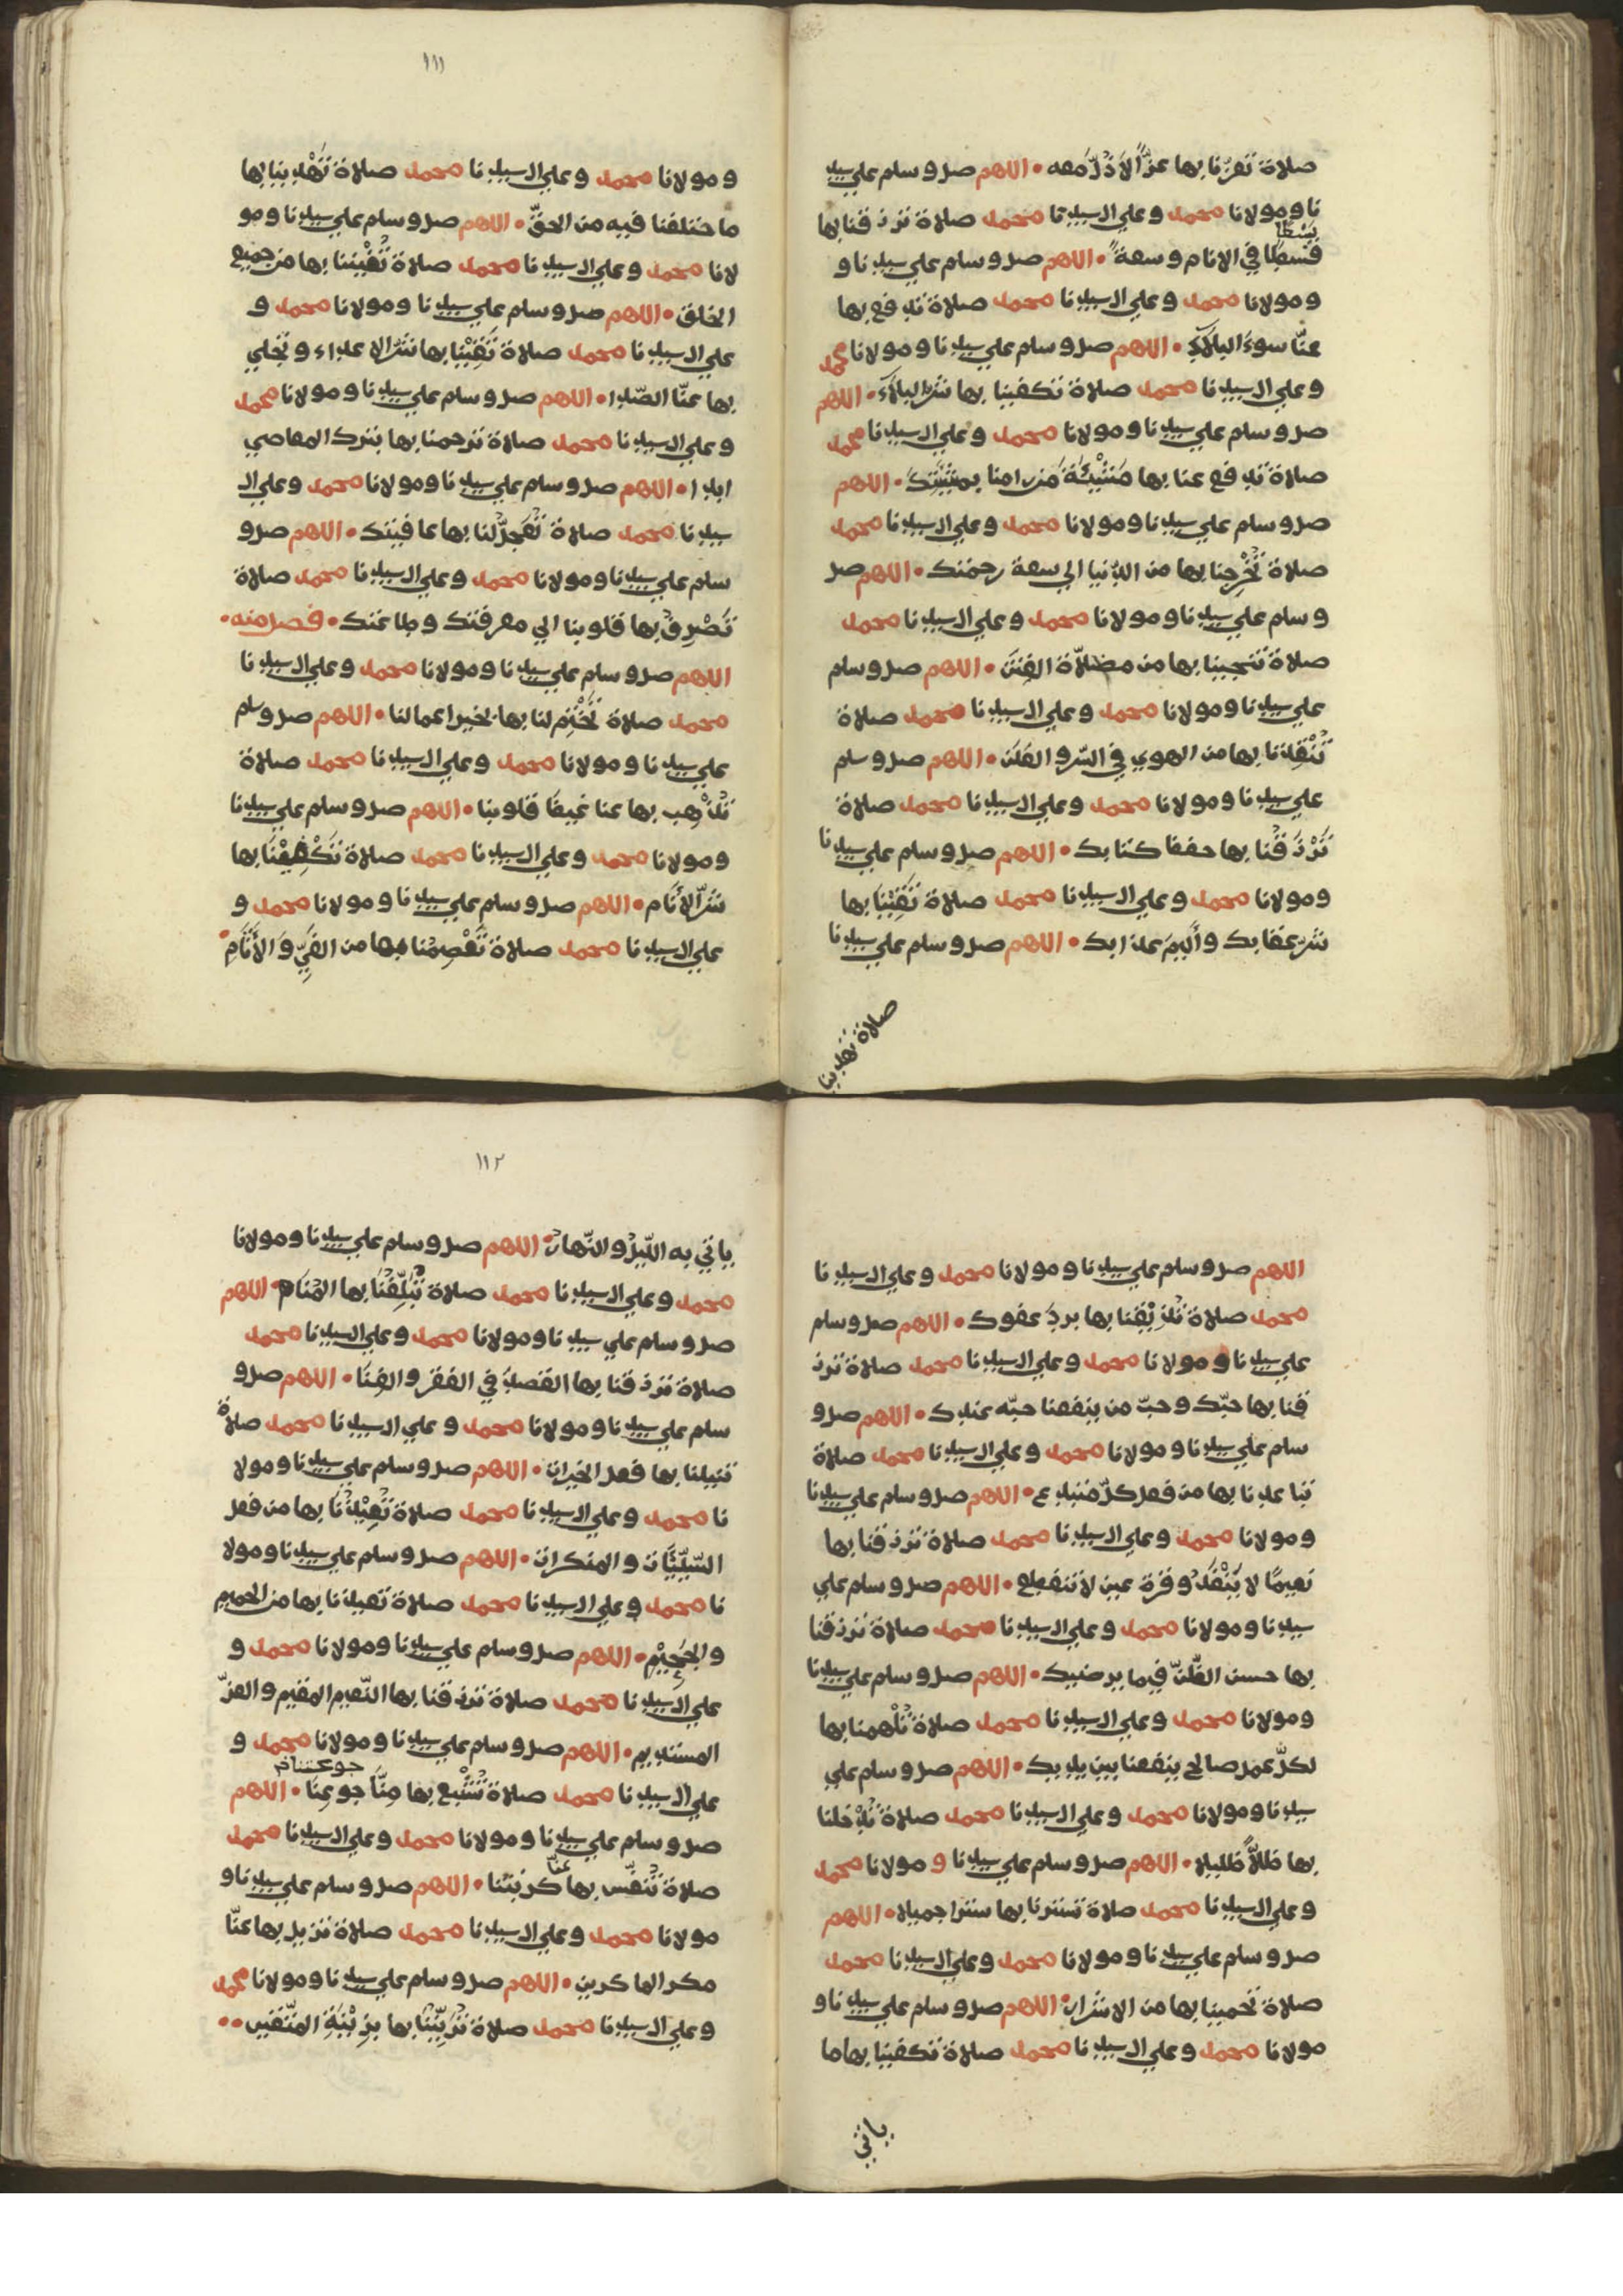 صلاة تعزّنا بها عزّا لا ذلّ معه • اللهم صل وسلم علي سيد
نا ومولانا محمد وعلي ال سيدنا محمد صلاة ترزقنا بها
بسطا
قسطا في الانام وسعة • اللهم صل وسلم علي سيدنا و
ومولانا محمد وعلي ال سيدنا محمد صلاة تدفع بها
عنّا سوء البلاء • اللهم صل وسلم علي سيدنا ومولانا محمد
وعلي ال سيدنا محمد صلاة تكفينا بها شر البلاء • اللهم
صل وسلم علي سيدنا ومولانا محمد وعلي ال سيدنا محمد
صلاة تدفع عنا بها مشيئة من رامنا بمشيتك • اللهم
صل وسلم علي سيدنا ومولانا محمد وعلي ال سيدنا محمد
صلاة تخرجنا بها من الدّنيا الي سعة رحمتك • اللهم صل
وسلم علي سيدنا ومولانا محمد وعلي ال سيدنا محمد
صلاة تنجينا بها من مضلاّة الفتن • اللهم صل وسلم
علي سيدنا ومولانا محمد وعلي ال سيدنا محمد صلاة
تنقذنا بها من الهوي في السّر والعلن • اللهم صل وسلم
علي سيدنا ومولانا محمد وعلي ال سيدنا محمد صلاة
ترزقنا بها حفظ كتابك • اللهم صل وسلم علي سيدنا
ومولانا محمد وعلي ال سيدنا محمد صلاة تقينا بها
شرّ عقابك وأليم عذابك • اللهم صل وسلم علي سيدنا
صلاة تهدينا
١١١
ومولانا محمد وعلي ال سيدنا محمد صلاة تهدينا بها
ما ختلفنا فيه من الحقّ • اللهم صل وسلم علي سيدنا ومو
لانا محمد وعلي ال سيدنا محمد صلاة تغنينا بها من جميع
الخلق • اللهم صل وسلم علي سيدنا ومولانا محمد و
علي ال سيدنا محمد صلاة تقينا بها شرّ الاعداء وتجلي
بها عنّا الصّدا • اللهم صل وسلم علي سيدنا ومولانا محمد
وعلي ال سيدنا محمد صلاة ترحمنا بها بترك المعاصي
ابدا • اللهم صل وسلم علي سيدنا ومولانا محمد وعلي ال
سيدنا محمد صلاة تعجّل لنا بها عافيتك • اللهم صل و
سلم علي سيدنا ومولانا محمد وعلي ال سيدنا محمد صلاة
تصرف بها قلوبنا الي معرفتك وطاعتك • فصل منه •
اللهم صل وسلم علي سيدنا ومولانا محمد وعلي ال سيدنا
محمد صلاة تختم لنا بها بخير اعمالنا • اللهم صل وسلم
علي سيدنا ومولانا محمد وعلي ال سيدنا محمد صلاة
تذهب بها عنا غيظ قلوبنا • اللهم صل وسلم علي سيدنا
ومولانا محمد وعلي ال سيدنا محمد صلاة تكفينا بها
شرّ الأنام • اللهم صل وسلم علي سيدنا ومولانا محمد و
علي ال سيدنا محمد صلاة تعصمنا بها من الغيّ والأثام •
اللهم صل وسلم علي سيدنا ومولانا محمد وعلي ال سيدنا
محمد صلاة تذيقنا بها برد عفوك • اللهم صل وسلم
علي سيدنا ومولانا محمد وعلي ال سيدنا محمد صلاة ترز
قنا بها حبّك وحبّ من ينفعنا حبّه عندك • اللهم صل و
سلم علي سيدنا ومولانا محمد وعلي ال سيدنا محمد صلاة
تباعدنا بها من فعل كلّ مبتدع • اللهم صل وسلم علي سيدنا
ومولانا محمد وعلي ال سيدنا محمد صلاة ترزقنا بها
نعيمًا لا ينفد وقرة عين لا تنقطع • اللهم صل وسلم علي
سيدنا ومولانا محمد وعلي ال سيدنا محمد صلاة ترزقنا
بها حسن الظّنّ فيما يرضيك • اللهم صل وسلم علي سيدنا
ومولانا محمد وعلي ال سيدنا محمد صلاة تلهمنا بها
لكلّ عمل صالح ينفعنا بين يديك • اللهم صل وسلم علي
سيدنا ومولانا محمد وعلي ال سيدنا محمد صلاة تدخلنا
بها ظلاًّ ظليلا • اللهم صل وسلم علي سيدنا و مولانا محمد
وعلي ال سيدنا محمد صلاة تسترنا بها سترا جميلا • اللهم
صل وسلم علي سيدنا ومولانا محمد وعلي ال سيدنا محمد
صلاة تحمينا بها من الاشرار • اللهم صل وسلم علي سيدنا و
مولانا محمد وعلي ال سيدنا محمد صلاة تكفينا بها ما
ياتي
١١٢
ياتي به اللّيل والنّهار • اللهم صل وسلم علي سيدنا ومولانا
محمد وعلي ال سيدنا محمد صلاة تبلّغنا بها المنا • اللهم
صل وسلم علي سيدنا ومولانا محمد وعلي ال سيدنا محمد
صلاة ترزقنا بها القصد في الفقر والغنا • اللهم صل و
سلم علي سيدنا ومولانا محمد وعلي ال سيدنا محمد صلاة
تنيلنا بها فعل الخيرات • اللهم صل وسلم علي سيدنا ومولا
نا محمد وعلي ال سيدنا محمد صلاة تعيذنا بها من فعل
السّيّئات والمنكرات • اللهم صل وسلم علي سيدنا ومولا
نا محمد وعلي ال سيدنا محمد صلاة تعيذنا بها من الحميم
والجحيم • اللهم صل وسلم علي سيدنا ومولانا محمد و
علي ال سيدنا محمد صلاة ترزقنا بها النّعيم المقيم والعزّ
المستديم • اللهم صل وسلم علي سيدنا ومولانا محمد و
علي ال سيدنا محمد صلاة تشبع بها منّا جوعنا • اللهم
صل وسلم علي سيدنا ومولانا محمد وعلي ال سيدنا محمد
عنا
صلاة تنفّس بها كربتنا • اللهم صل وسلم علي سيدنا و
مولانا محمد وعلي ال سيدنا محمد صلاة تزيل بها عنّا
مكر الماكرين • اللهم صل وسلم علي سيدنا ومولانا محمد
وعلي ال سيدنا محمد صلاة تزيّننا بها بزينة المتّقين ••